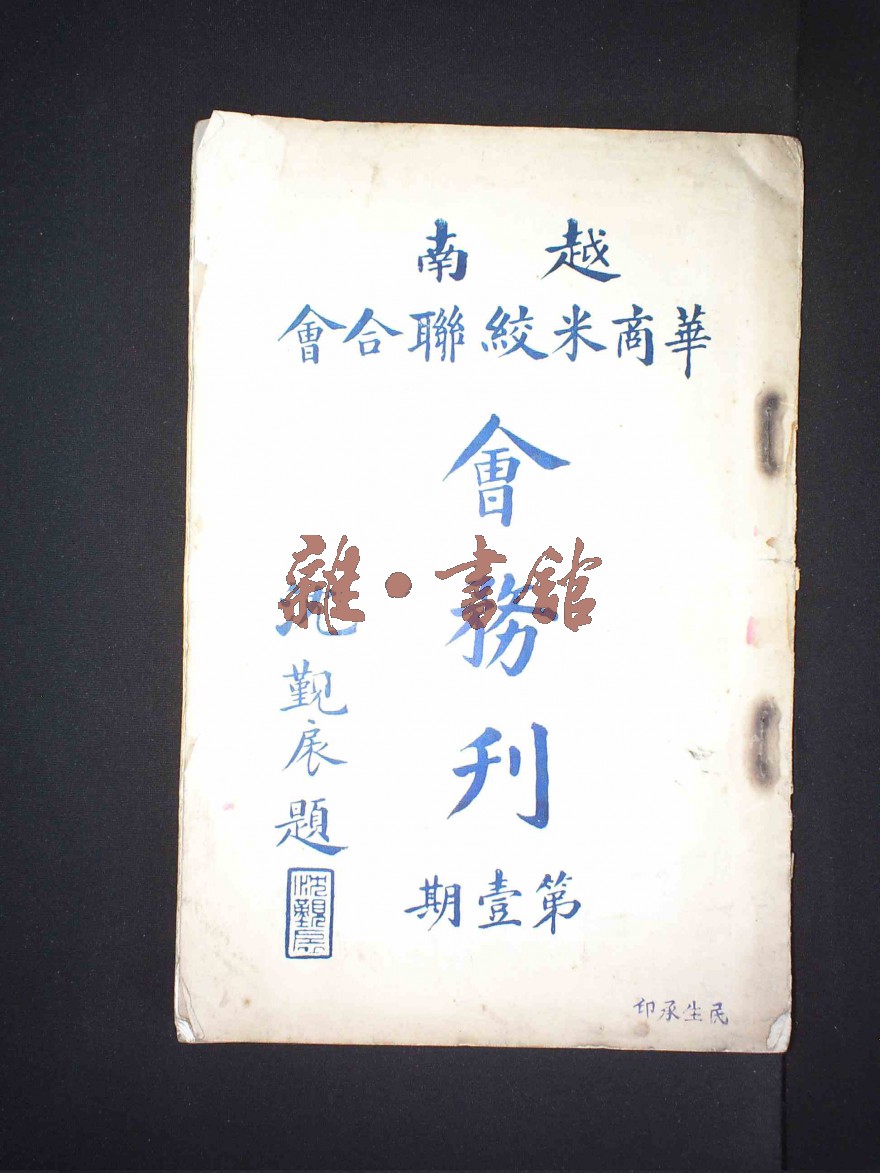 越南
華商米絞聯合會
會務刊
第壹期
沈覲扆題
沈覲扆
民生承印
雜·書館